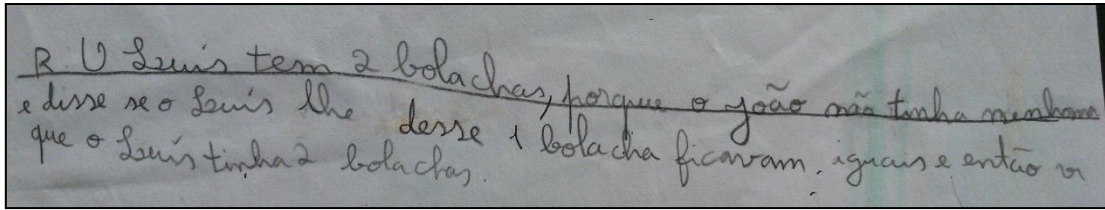 R. O Luís tem 2 bolachas, porque o joão não tinha nenhuma
e disse se o Luís lhe desse 1 bolacha ficavam iguais e então vi
que o Luís tinha 2 bolachas.